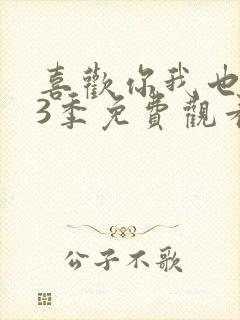 喜歡你我也
3季免費觀看
公子不歌